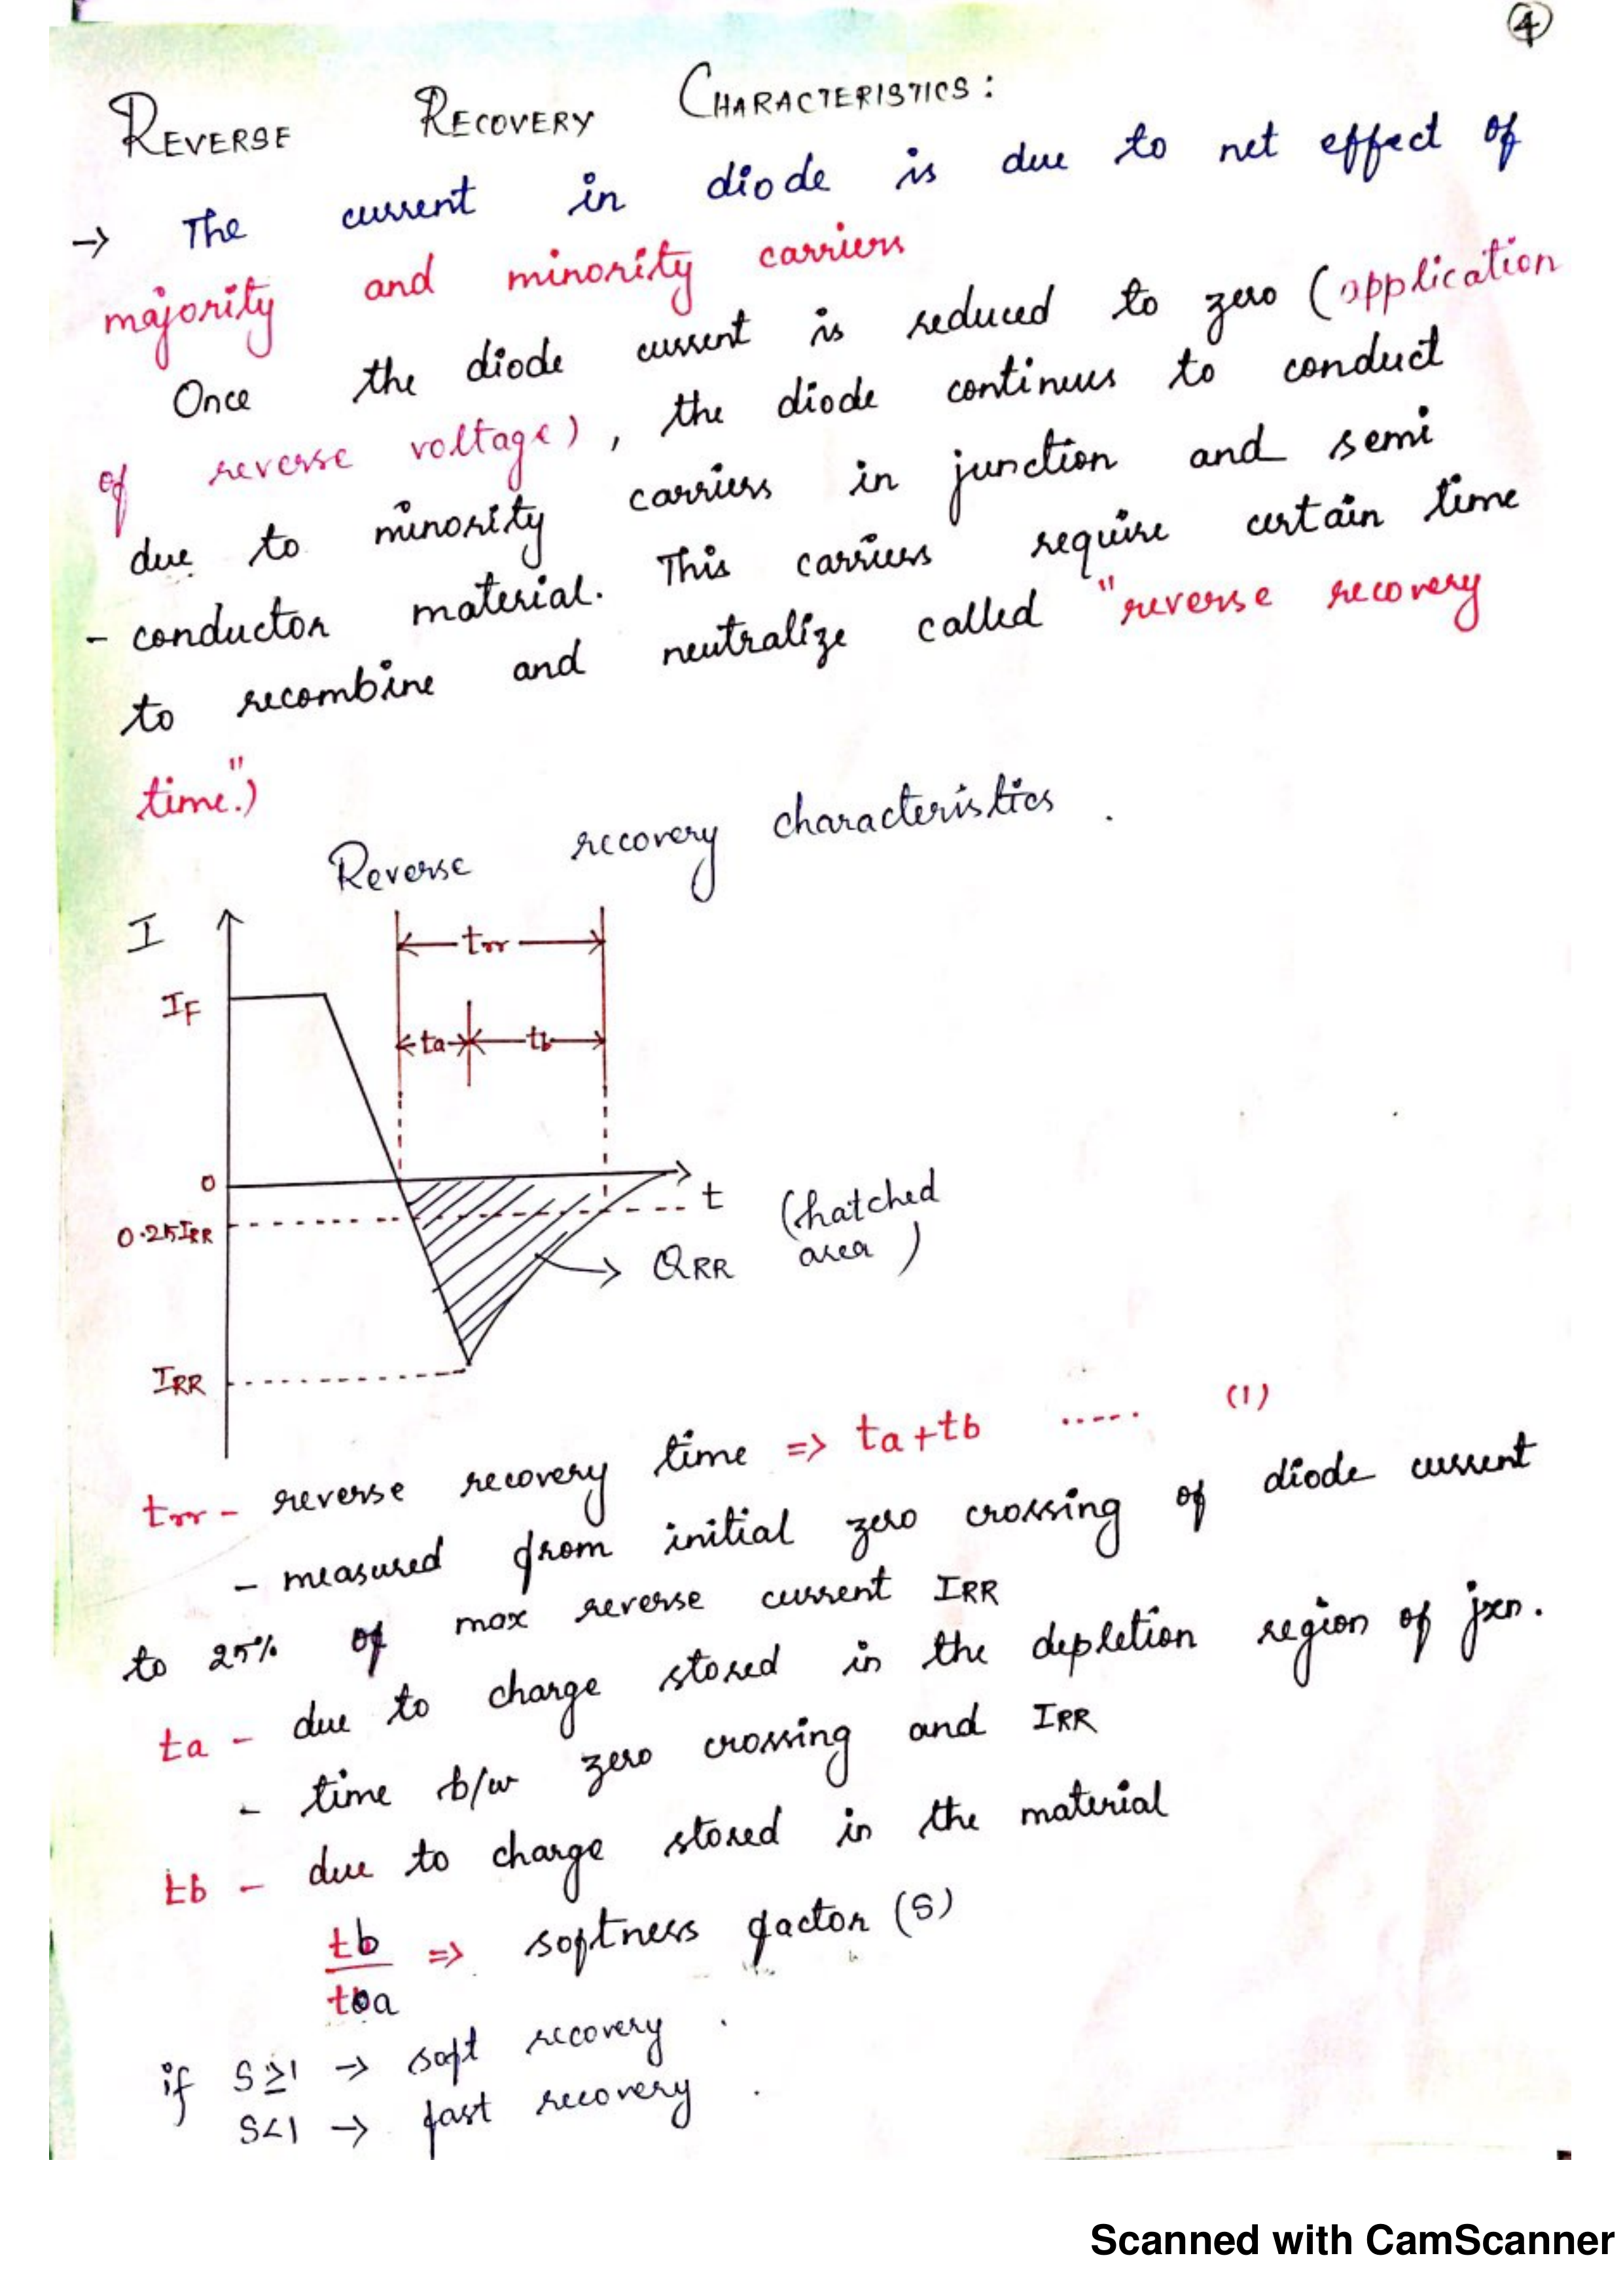 4
REVERSE RECOVERY CHARACTERISTICS:
→ The current in diode is due to net effect of
majority and minority carriers
Once the diode current is reduced to zero (application
of reverse voltage), the diode continues to conduct
due to minority carriers in junction and semi
- conductor material. This carriers require certain time
to recombine and neutralize called "reverse recovery
time".)
Reverse recovery characteristics.
I
trr
IF
ta tb
0
t (hatched
0.25IRR
QRR area)
IRR
trr - reverse recovery time => ta+tb ..... (1)
- measured from initial zero crossing of diode current
to 25% of max reverse current IRR
ta - due to charge stored in the depletion region of jxn.
- time b/w zero crossing and IRR
tb - due to charge stored in the material
tb
=> softness factor (S)
ta
if S≥1 → soft recovery.
S<1 → fast recovery.
Scanned with CamScanner